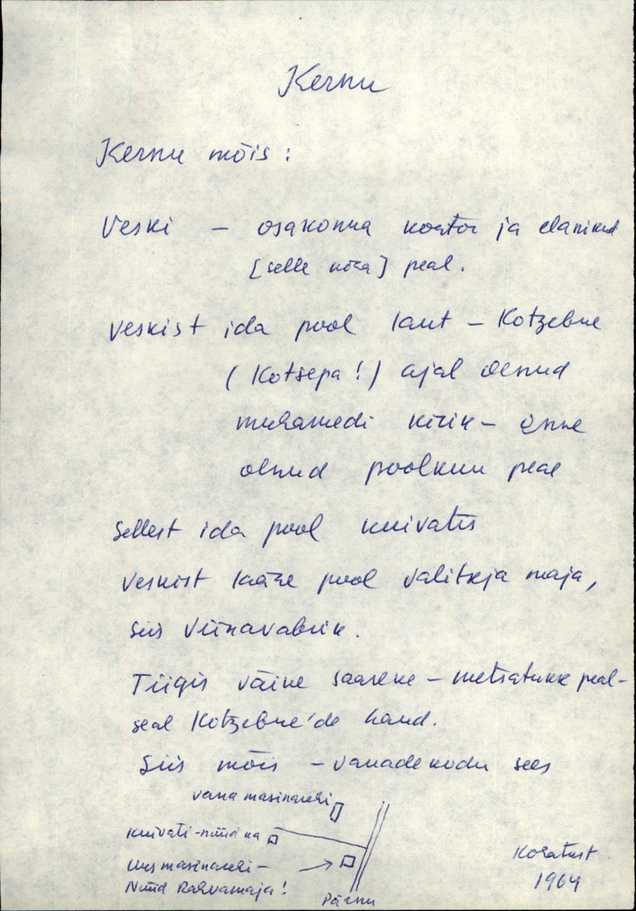 Kernu
Kernu mõis:
Veski – osakonna kontor ja elanikud
[selle nõza] peal.
Veskist ida pool laut – Kotzebue
(Kotsepa!) ajal olnud
muhamedi kirik – enne
olnud poolkuu peal
Sellest ida pool kuivatis
Veskist lääne pool valitseja maja,
siis viinavabrik.
Tiigis väike saareke – metsatukk peal –
seal Kotzebue'de haud.
Siis mõis – vanadekodu sees
vana masinaruhi
kuivati – nüüd ka
uus masinaruhi –
Nüüd Rahvamaja!
Pärnu
Kohatust
1964